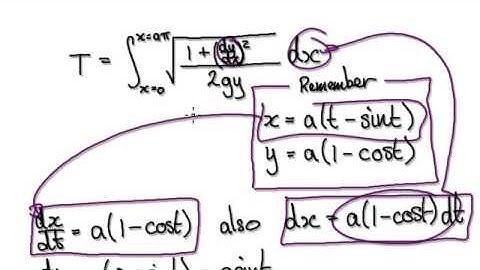 T = ∫_{x=0}^{x=aπ} √((1 + (dy/dx)²)/(2gy)) dx
Remember
x = a(t - sint)
y = a(1 - cost)
dx/dt = a(1 - cost) also dx = a(1 - cost) dt